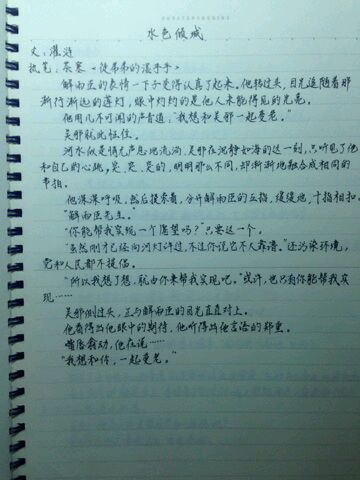 水色倾城
文：灌汝
执笔：茶寒《徒弟弟的漫手手》
解雨臣的表情一下子变得认真了起来。他转过头，目光追随着那
渐行渐远的莲灯，眼中灼灼的是他人未能得见的光亮。
他用几不可闻的声音道："我想和吴邪一起变老。"
吴邪就此怔住。
河水似是情无声息地流淌，吴邪在沉静如海的这一刻，只听见了他
和自己的心跳，是，是，是的，明明那么不同，却渐渐地融合成相同的
节拍。
他深深呼吸，然后摸索着，分开解雨臣的五指，缓缓地，十指相扣。
"解雨臣先生。"
"你能帮我实现一个愿望吗？只要这一个。
"虽然刚才已经向河灯许过，不过你说它不太靠谱。"还污染环境，
党和人民都不提倡。
"所以我想了想，就由你来帮我实现吧。"或许，也只有你能帮我实
现……
吴邪侧过头，正与解雨臣的目光直直对上。
他看得出他眼中的期待，他听得出他言语的郑重。
嘴唇翕动，他在说……
"我想和你，一起变老。"